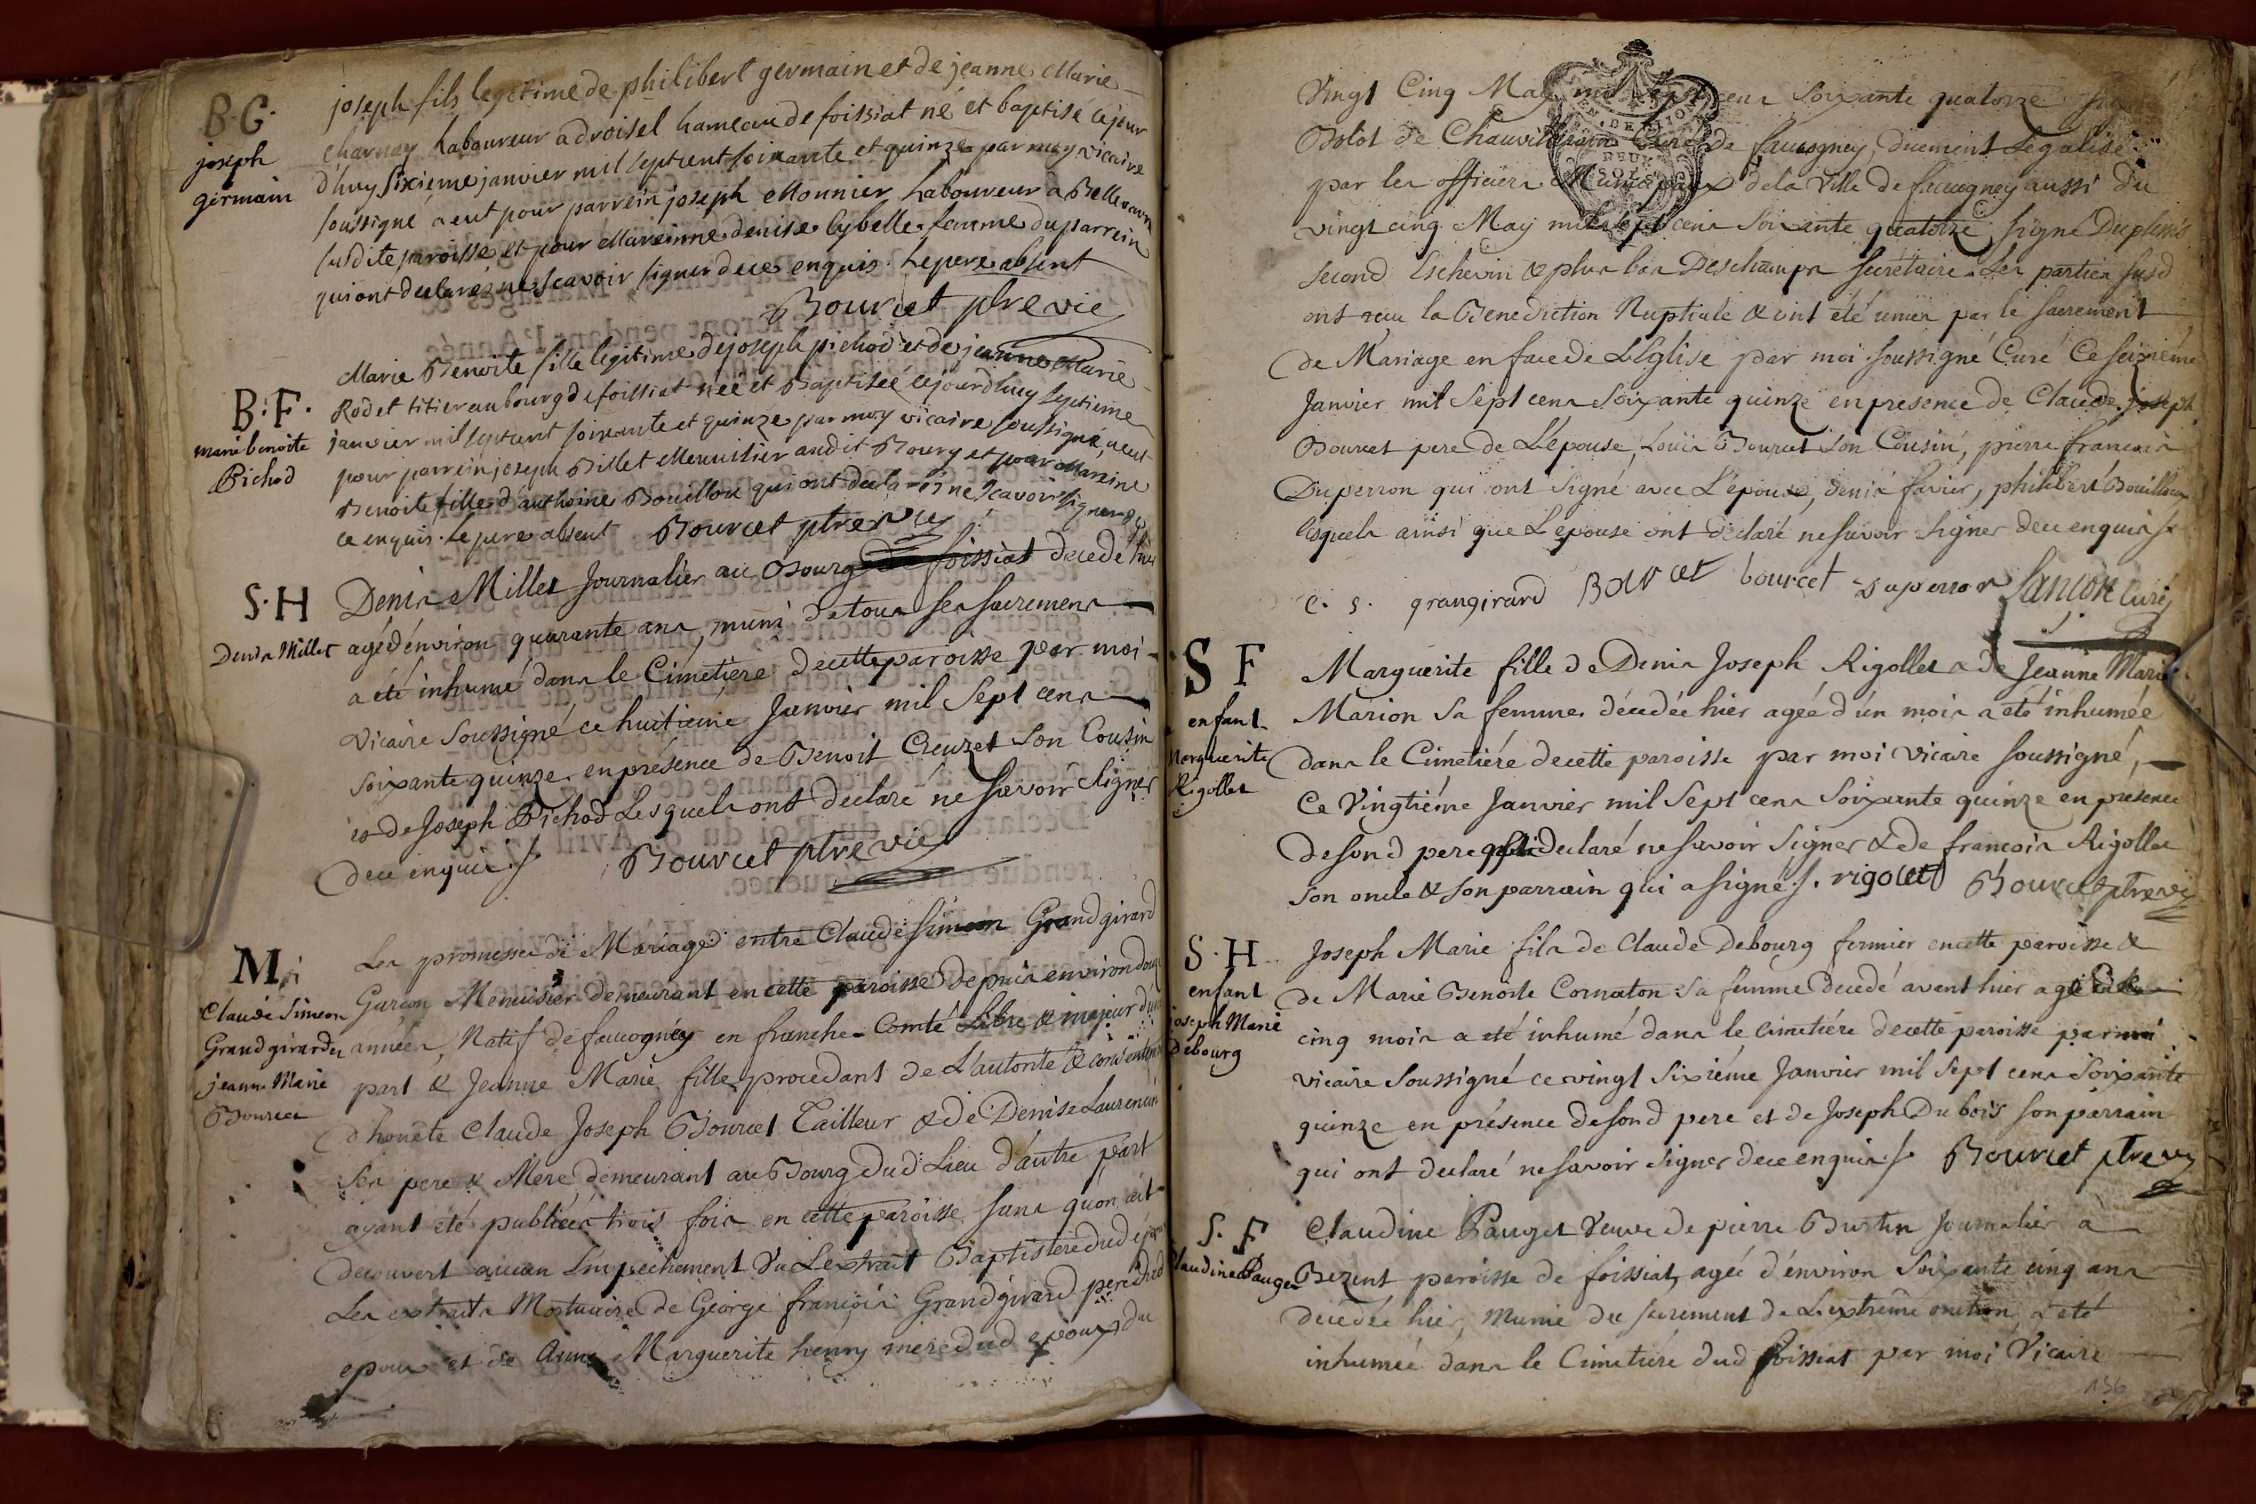 B. G.
joseph
germain
joseph fils legitime de philibert germain et de jeanne Marie
charnay Laboureur a droisel hameau de foissiat né et baptisé ce jour
d'huy sixieme janvier mil sept cent soixante et quinze par moy vicaire
soussigné a eut pour parrein joseph Monnier Laboureur a
susdite paroisse et pour Mareinne denise lybelle femme du parrein
qui ont declarés ne scavoir signer de ce enquis. Le pere absent
Bourcet ptre vic
B. F.
marie benoite
Pichod
Marie Benoite fille legitime de joseph pichod et de jeanne Marie
Rodet titier au bourg de foissiat née et Baptisée ce jourdhuy septieme
janvier mil sept cent soixante et quinze par moy vicaire soussigné, a eut
pour parrein joseph Billet Menuisier audit Bourg et pour Mareine
Benoite fille d'anthoine Bouillou qui ont declarés ne scavoir signer de
ce enquis. Le pere absent Bourcet ptre vic
S. H
Denis Millet
Denis Millet Journalier au Bourg de foissiat decedé hier
agé d'énviron quarante ans, muni de tous ses sacremens
a été inhumé dans le Cimetiere de cette paroisse par moi
Vicaire Soussigné ce huitiéme Janvier mil Sept cens
soixante quinze en présence de Benoit Creuzet son Cousin
et de Joseph Pichod Lesquels ont declaré ne savoir signer
de ce enquis ./. Bourcet ptre vic
M.
Claude Simeon
Grandgirard et
jeanne Marie
Bourcet
Les promesses de Mariage entre Claude Simeon Grandgirard
Garcon Menuisier demeurant en cette paroisse depuis environ douze
années, Natif de faucogney en franche-Comté Libre & majeur d'une
part & Jeanne Marie fille procedant de L'autorité & consentement
d'honête Claude Joseph Bourcet Tailleur & de Denise Laurencin
ses pere & Mere demeurant au Bourg dud. Lieu d'autre part
ayant été publiées trois fois en cette paroisse sans qu'on ait
decouvert aucun Empechement Vu L'extrait Baptistere dud époux
Les extraits Mortuaires de George françois Grandgirard pere dud
epoux et de Anne Marguerite henry mere dud epoux du
Vingt Cinq May mil sept cens soixante quatorze
Bolot de Chauvillerain Curé de faucogney, duement Légalisé
par les officiers Municipaux de la Ville de faucogney aussi du
vingt cinq May mil sept cens soixante quatorze signé Duplessis
second Eschevin & plus bas Deschamps secrétaire. Les parties susd
ont recu la Bénédiction Nuptiale & ont été unies par le sacrement
de Mariage en face de L'église par moi soussigné Curé Ce seiziéme
Janvier mil sept cens soixante quinze en presence de Claude joseph
Bourcet pere de L'épouse, Loüis Bourcet son Cousin, pierre francois
Duperron qui ont signé avec L'epoux, denis favier, philibert Bouillou
lesquels ainsi que L'epouse ont déclaré ne savoir signer de ce enquis ./.
C. S. grangirard Bourcet bourcet duperron Sancon Curé
S F
enfant
Marguerite
Rigollet
Marguerite fille de Denis Joseph Rigollet & de Jeanne Marie
Marion sa femme décedée hier agée d'un mois a été inhumée
dans le Cimetiére de cette paroisse par moi vicaire soussigné,
Ce Vingtiéme Janvier mil sept cens soixante quinze en presence
de sond pere qui a declaré ne savoir signer & de francois Rigollet
son oncle & son parrain qui a signé ./. rigolet Bourcet ptre vic
S. H
enfant
joseph Marie
debourg
Joseph Marie fils de Claude Debourg fermier en cette paroisse &
de Marie Benoite Cornaton sa femme decedé avant hier agé de
cinq mois a été inhumé dans le cimetiére de cette paroisse par moi
vicaire soussigné ce vingt sixiéme Janvier mil sept cens soixante
quinze en présence de sond pere et de Joseph Dubois son parrain
qui ont declaré ne savoir signer de ce enquis ./. Bourcet ptre vic
S. F
Claudine Pauget
Claudine Pauget Veuve de pierre Burtin Journalier à
Bezent paroisse de foissiat, agée d'environ soixante cinq ans
decedée hier, munie du sacrement de L'extreme onction, a été
inhumée dans le Cimetiére dud foissiat par moi Vicaire
156